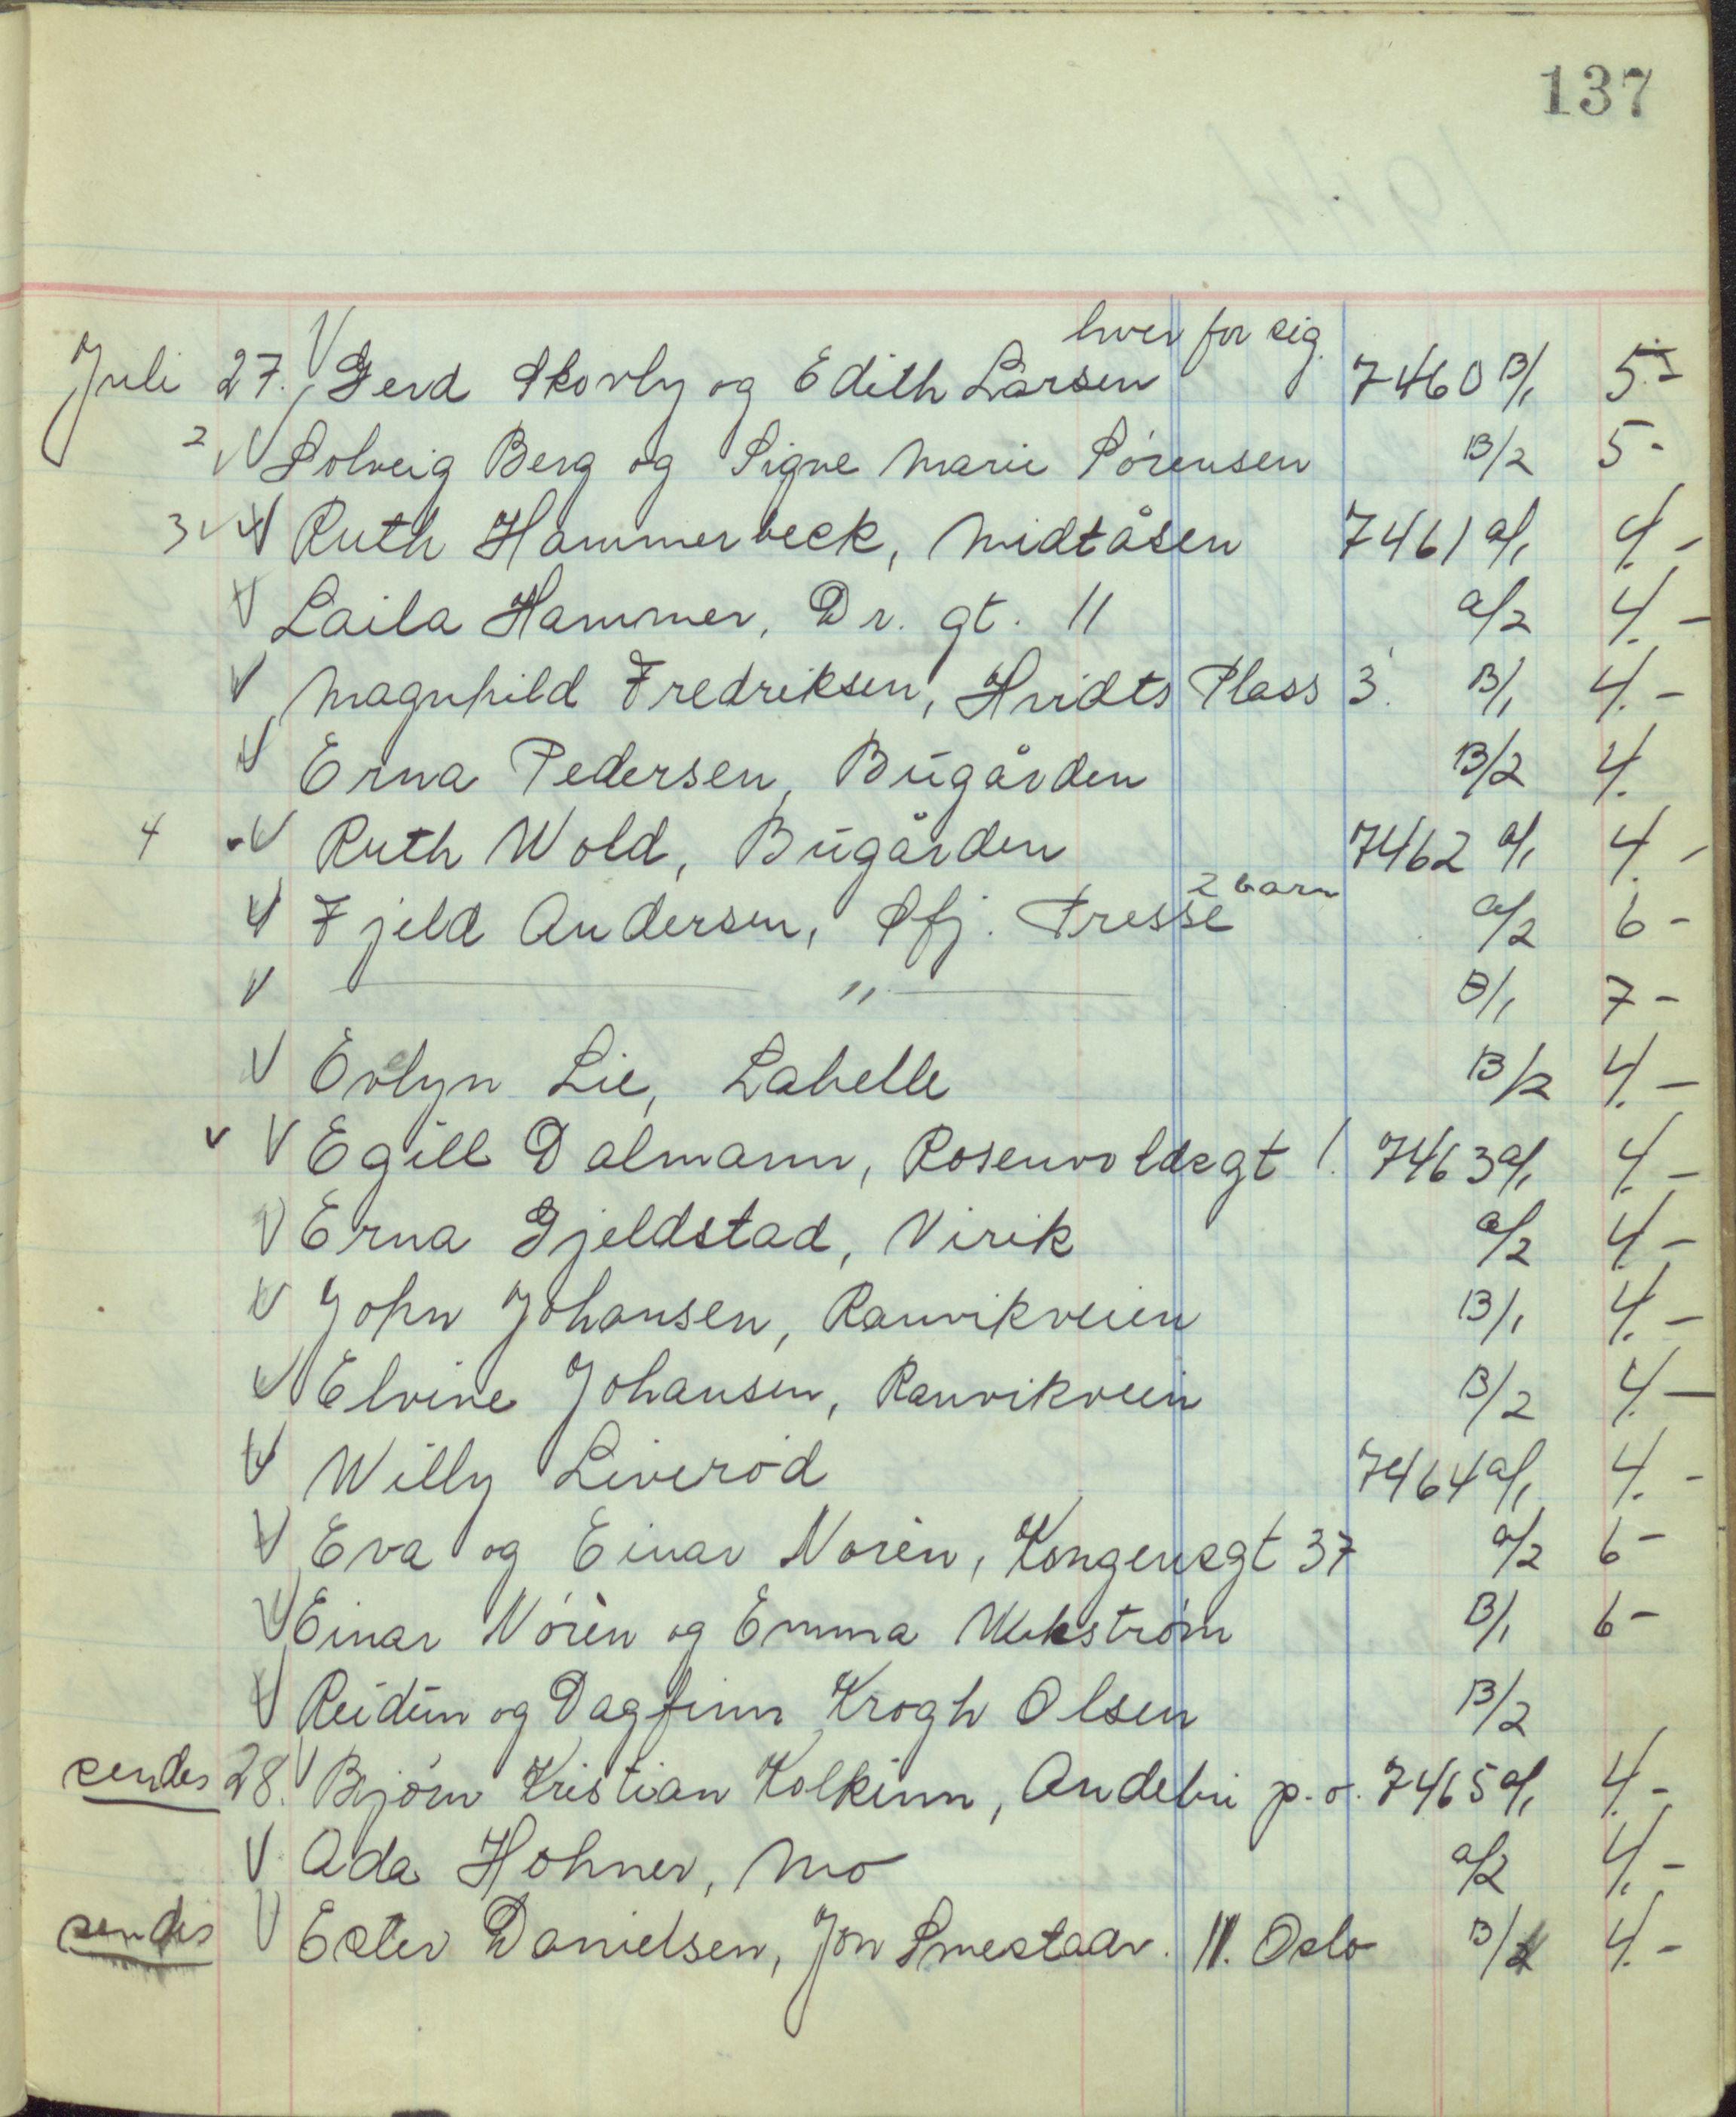 137
hver for sig.
Juli 27. V Gerd Skovly og Edith Larsen 7460 B/1 5.-
2 V Solveig Berg og Signe Marie Sörensen B/2 5-
3 V Ruth Hammerbeck, Midtåsen 7461 a/1 4.-
V Laila Hammer, Dr. gt. 11 a/2 4.-
V Magnhild Fredriksen, Hvidts Plass 3. B/1 4.-
V Erna Pedersen, Bugården B/2 4.
4 V Ruth Wold, Bugården 7462 a/1 4.-
2 barn
V Fjeld Andersen, Sfj. Presse a/2 6-
V — " — B/1 7-
V Evelyn Lie, Labelle B/2 4.-
V V Egill Dalmann, Rosenvoldsgt 1. 7463 a/1 4.-
V Erna Gjeldstad, Virik a/2 4.-
V John Johansen, Ranvikveien B/1 4.-
V Elvine Johansen, Ranvikveien B/2 4.-
V Willy Liveröd 7464 a/1 4.-
V Eva og Einar Norèn, Kongensgt 37 a/2 6-
V Einar Nórèn og Emma B/1 6-
V Reidun og Dagfinn Krogh Olsen B/2
sendes 28. V Bjørn Kristian Kolkinn, Andebu p.o. 7465 a/1 4.-
V Ada Hohner, Mo a/2 4.-
sendes V Ester Danielsen, Jon Smestadv. 11. Oslo B/1 4.-